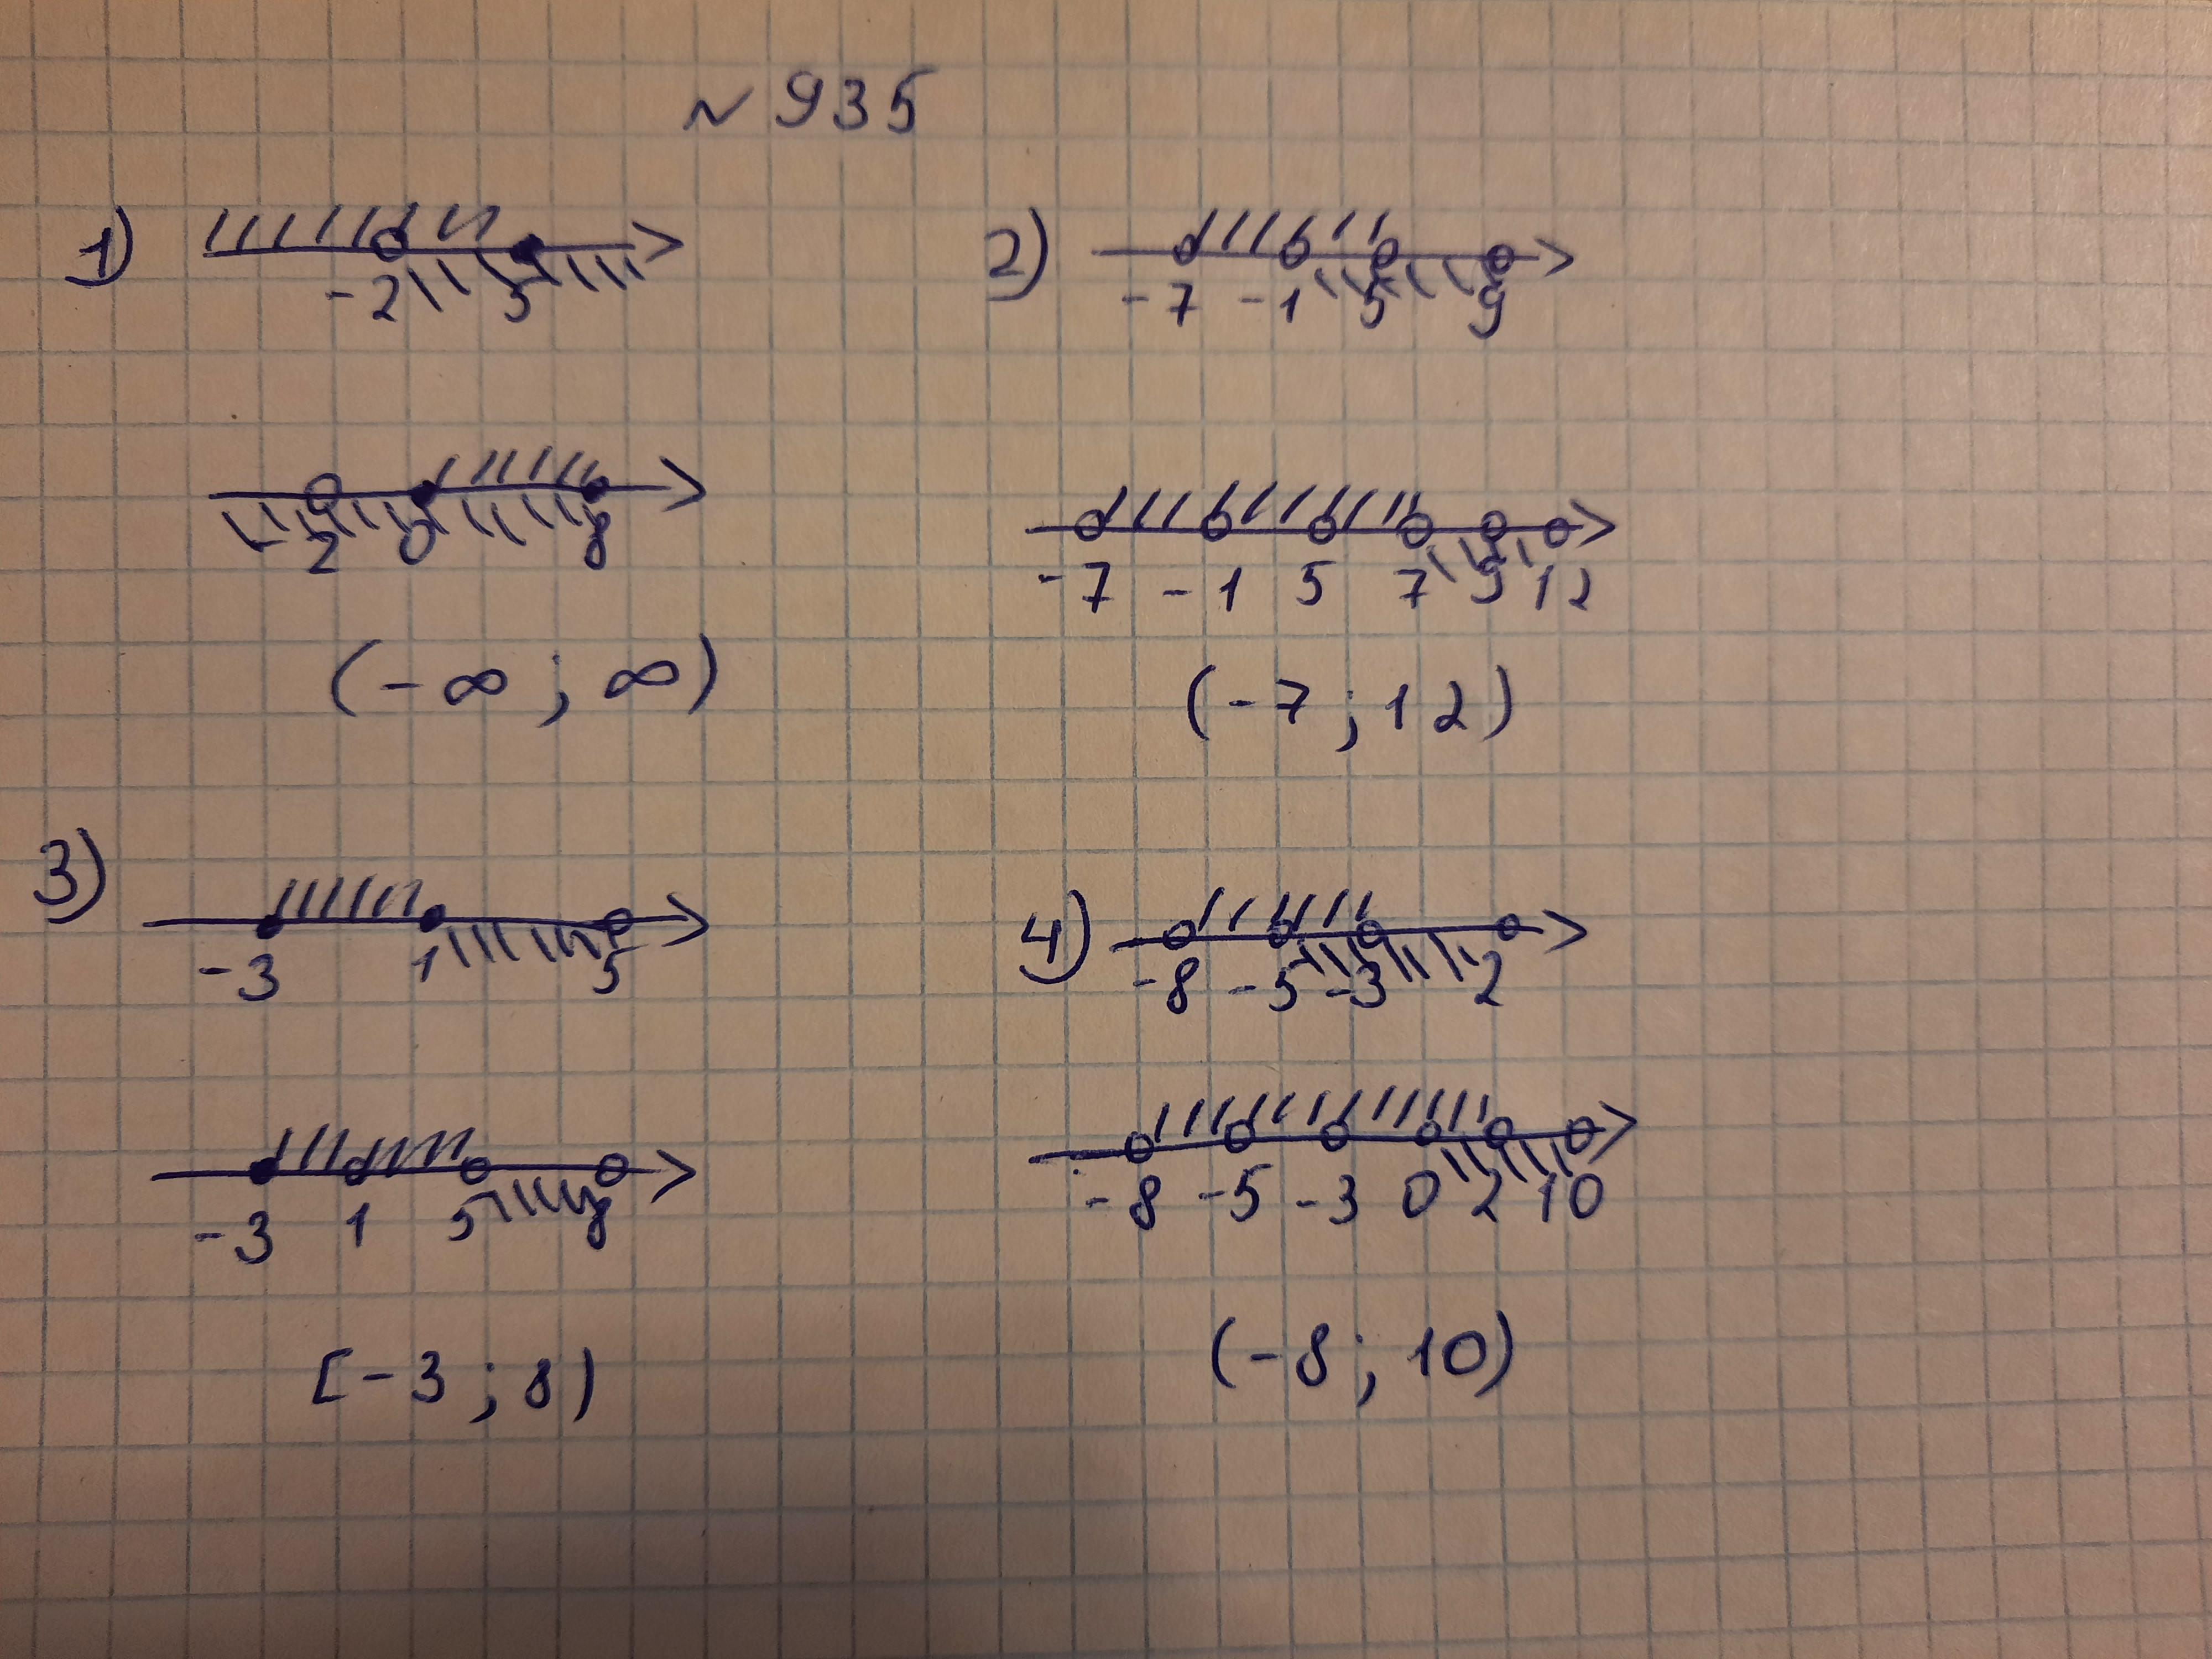 ~ 935
1)
-2 5
2 0 8
(-∞ ; ∞)
2)
-7 -1 5 9
-7 -1 5 7 9 12
(-7 ; 12)
3)
-3 1 5
-3 1 5 8
[-3 ; 8)
4)
-8 -5 -3 2
-8 -5 -3 0 2 10
(-8 ; 10)